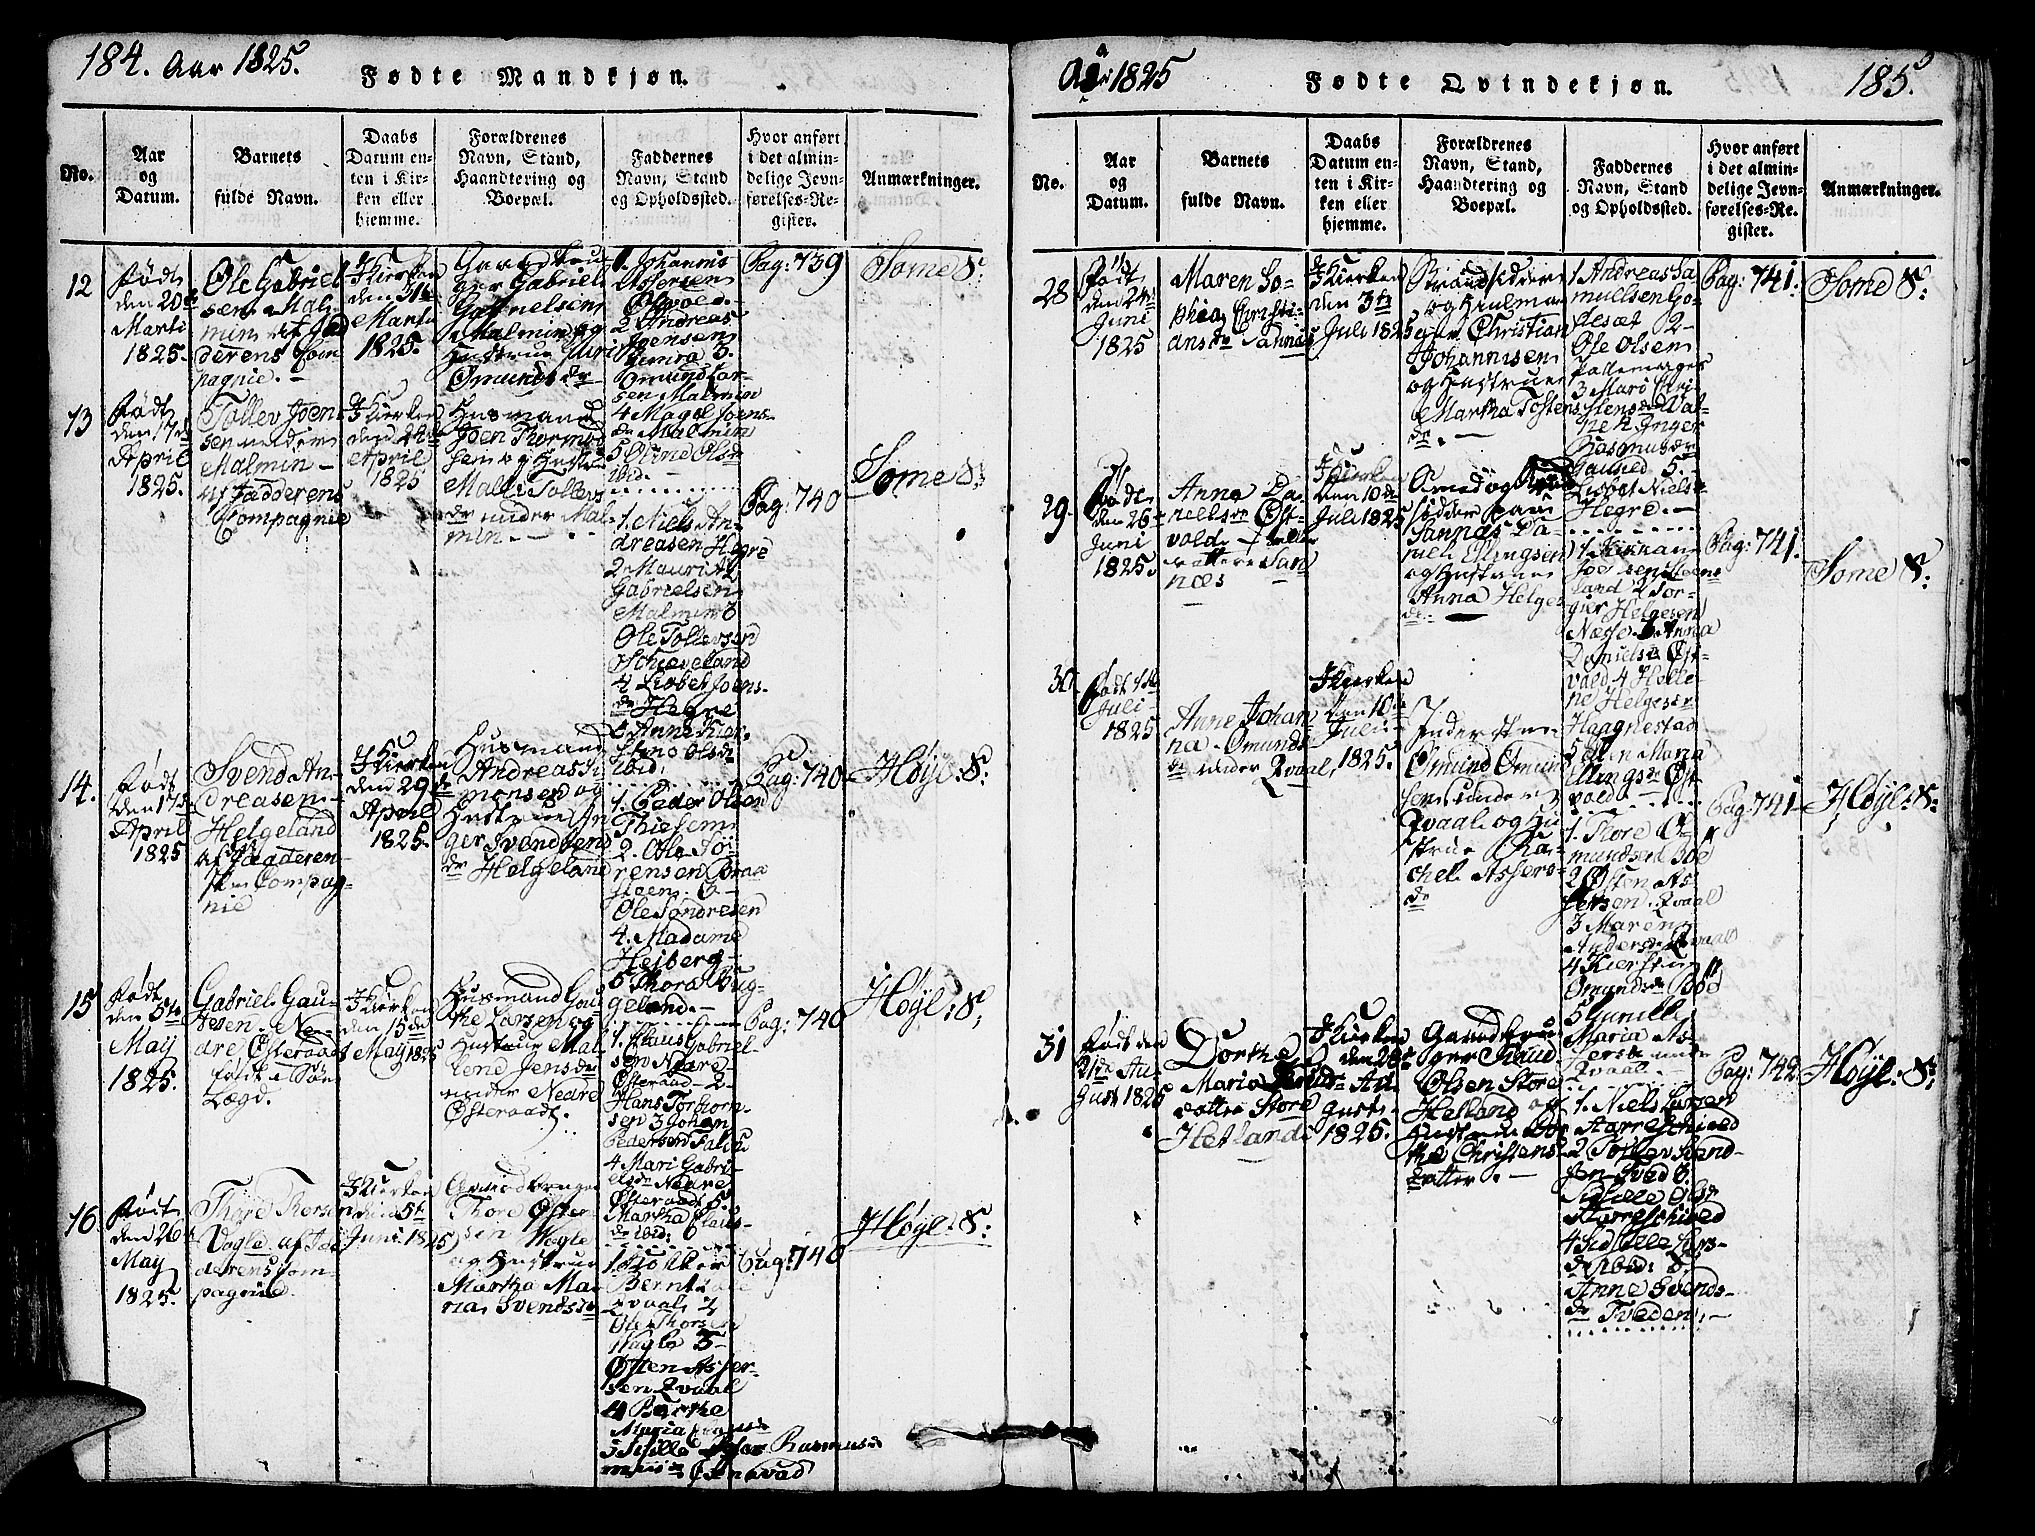 184. Aar 1825.
Fødte Mandkjøn.
No.
Aar
og
Datum.
Barnets
fulde Navn.
Daabs
Datum en-
ten i Kir-
ken eller
hjemme.
Forældrenes
Navn, Stand,
Haandtering og
Boepæl.
Faddernes
Navn, Stand
og Opholdssted.
Hvor anført
i det almin-
delige Jevn-
førelses-Re-
gister.
Anmærkninger.
12
Født
den 20de
Marti
1825.
Ole Gabriel
sen Mal-
min af Jæd
derens Com-
pagnie.
I Kirken
den 31te
Marti
1825.
Gaardbru
ger Gabriel
Gabrielsen
Malmin og
Hustrue Guri
Omunds dr
1. Johannis
Assersen
Osvold.
2 Andreas
Joensen
Jemra 3.
Omund Lar-
sen Malmin
4 Magel Joens-
dr Malmin
5 Olene Olsdr
ibid.
Pag: 739
Some S:
13
Født
den 17de
April
1825.
Tollev Joen
sen under
Malmin
af Jædderens
Compagnie
I Kirken
den 22de
April
1825
Husmand
Joen Thormod
sen og Hustru
Malli Tollevs
dr under Mal-
min.
1. Niels An-
dreasen Hegre
2 Mauritz
Gabrielsen
Malmin 3
Ole Tollevsen
Schieveland
4 Lisbet Joens-
dr Hegre
5 Anne Kier-
stine Olsdr
ibid.
Pag: 740
Some S:
14.
Født
den 17de
April
1825
Svend An-
dreasen
Helgeland
af Jædderen-
ske Compag-
nie
I Kirken
den 29de
April
1825.
Husmand
Andreas Si
monsen og
Hustrue In
ger Svendsens
dr Helgeland
1. Peder Olsen
Thiesem
2. Ole Sø-
rensen Braa
steen. 3
Ole Søndresen
4. Madame
Hejberg
5 Thora Byg-
geland.
Pag: 740
Høyl: S:
15
Født
den 5te
May
1825.
Gabriel Gau-
tesen Ne-
dre Østeraadt
født i Søn
Lægd.
I Kirken
den 15de
May 1825
Husmand Gou
the Larsen og
Hustrue Mal-
lend Jensdr
under Nedre
Østeraadt.
1. Claus Gabriel-
sen Nedre
Østeraad 2
Hans Torbiorn-
sen 3 Johan
Pedersen
4 Mari Gabri-
elsdr Nedre
Østeraadt 5
Martha Claus-
dr ibid:
Pag: 740
Høyl: S:
16
Født
den 26
May
1825.
Thore Thorsen
Vagle af Jæd
derens Com-
pagnie.
I Kirken
den 5te
Juni 1825
Thore Osten-
sen Vagle
og Hustrue
Martha Ma-
ria Svendsdr
1.
Bernt
Qvaal 2
Ole Thorsen
Vagle 3
Østen Asser-
sen Qvaal
4 Berthe
Maria
5 Sille Rasmusdr
Pag: 740
Høyl: S:
Aar 1825
Fødte Qvindekjøn.
185.
No.
Aar
og
Datum.
Barnets
fulde Navn.
Daabs
Datum en-
ten i Kir-
ken eller
hjemme.
Forældrenes
Navn, Stand,
Haandtering og
Boepæl.
Faddernes
Navn, Stand
og Opholdssted.
Hvor anført
i det almin-
delige Jevn-
førelses-Re-
gister.
Anmærkninger.
28
Født
den 24de
Juni
1825
Maren So-
phia Christi-
ansdr Sannæs
I Kirken
den 3te
Juli 1825
Strandsidder
og Hiulma
ger Christian
Johannisen
og Hustrue
Martha Tostens
dr.
1 Andreas Sa
muelsen Go-
desæt 2
Ole Olsen
3 Mari Chri-
stensdr Vat-
ne 4. Inger
Rasmusdr
Gausel 5.
Lisbet Nielsdr
Hegre.
Pag: 741.
Some S:
29.
Født
den 26
Juni
1825.
Anna Da-
nielsdr Øst-
vold eller
rettere San
næs
I Kirken
den 10de
Juli 1825
Smed og Strand
sidder paa
Sannæs Da-
niel Ellingsen
og Hustrue
Anna Helges
dr.
1.
Joesen Steens
land 2 Tor-
gier Helgesen
Næse 3 Anna
Danielsdr Øst-
vold 4 Helle-
ne Helgesdr
Haagnestad
5 Ellen Maria
Ellingsdr Øst
vold
Pag: 741.
Some S:
30.
Født 1te
Juli
1825
Anne Johan
na Omunds
dr under Qvaal
I Kirken
den 10de
Juli
1825.
Inderste
Omund Omund
sen under
Qvaal og Hu
strue Ra-
chel Assers-
dr
1. Tore O-
mundsen Bøe
2 Østen As-
sersen Qvaal
3 Maren
Andersdr Qvaal
4 Kiersti
Omundsdr Bøe
5 Gunille
Maria As-
sersdr under
Qvaal.
Pag: 741
Høyl: S:
31
Født den
21de Au-
gust 1825
Dorthe
Maria Knuds-
datter Store
Hetland
I Kirken
den 28de
Au-
gust
1825.
Gaardbru
ger Knud
Olsen Store
Hetland og
Hustrue Dor
the Christens
datter.
1. Niels Larsen
Starreschived
2 Tollev Svend-
sen Tved 3.
Sidselle Olsdr
Starreschived
4 Sidselle Lars-
dr ibid: 5.
Anne Svends-
dr Tveden.
Pag: 742
Høyl: S: